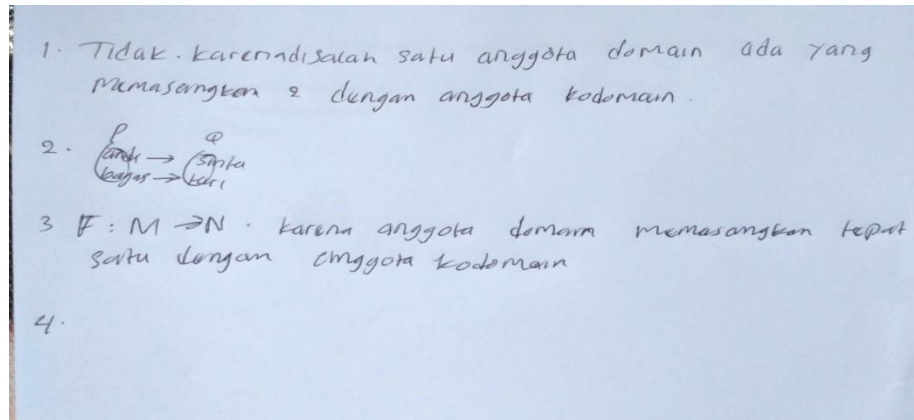 1. Tidak. karena disalah satu anggota domain ada yang
memasangkan 2 dengan anggota kodomain.
P Q
2. andi → sinta
bagas → tari
3 F : M → N . karena anggota domain memasangkan tepat
satu dengan anggota kodomain
4.